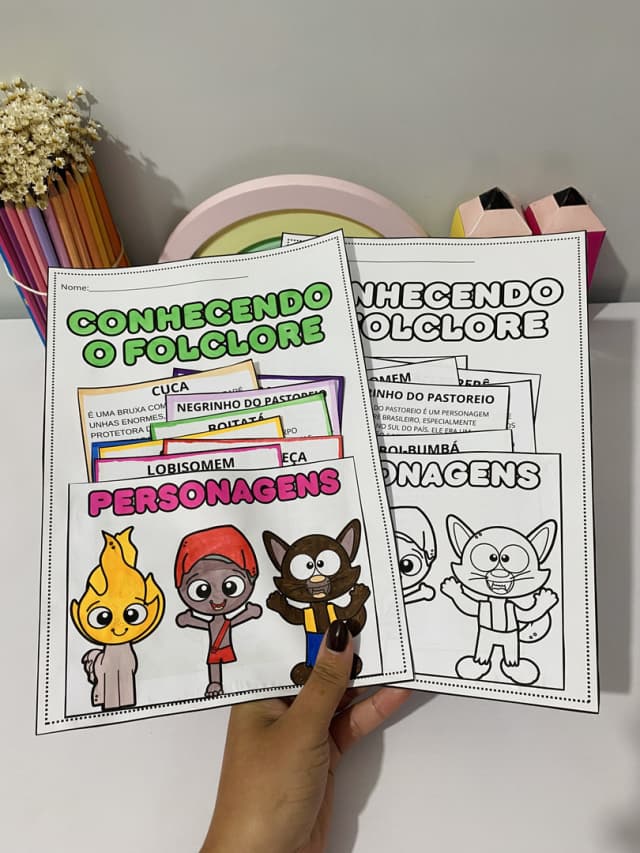 Nome:
CONHECENDO
O FOLCLORE
CUCA
É UMA BRUXA COM
UNHAS ENORMES,
PROTETORA D
NEGRINHO DO PASTOREIO
BOITATÁ
RPO
EÇA
LOBISOMEM
PERSONAGENS
NHECENDO
FOLCLORE
OMEM
PERÊ
RINHO DO PASTOREIO
DO PASTOREIO É UM PERSONAGEM
RE BRASILEIRO, ESPECIALMENTE
NO SUL DO PAÍS. ELE ERA UM
BOI-BUMBÁ
ONAGENS